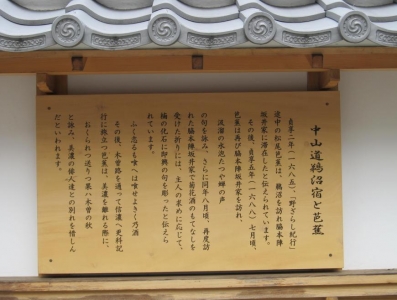 中山道鵜沼宿と芭蕉
貞享二年(一六八五)、「野ざらし紀行」
道中の松尾芭蕉は、鵜沼を訪れ脇本陣
坂井家に滞在したと伝えられています。
その後、貞享五年(一六八八)七月頃、
芭蕉は再び脇本陣坂井家を訪れ、
汲溜の水泡たつや蝉の声
の句を詠み、さらに同年八月頃、再度訪
れた脇本陣坂井家で菊花酒のもてなしを
受けた折りには、主人の求めに応じて、
楠の化石に即興の句を彫ったと伝えら
れています。
ふく志るも喰へは喰せよきく乃酒
その後、木曽路を通って信濃へ更科紀
行に旅立つ芭蕉は、美濃を離れる際に、
おくられつ送りつ果ハ木曽の秋
と詠み、美濃の俳人達との別れを惜しん
だといわれます。